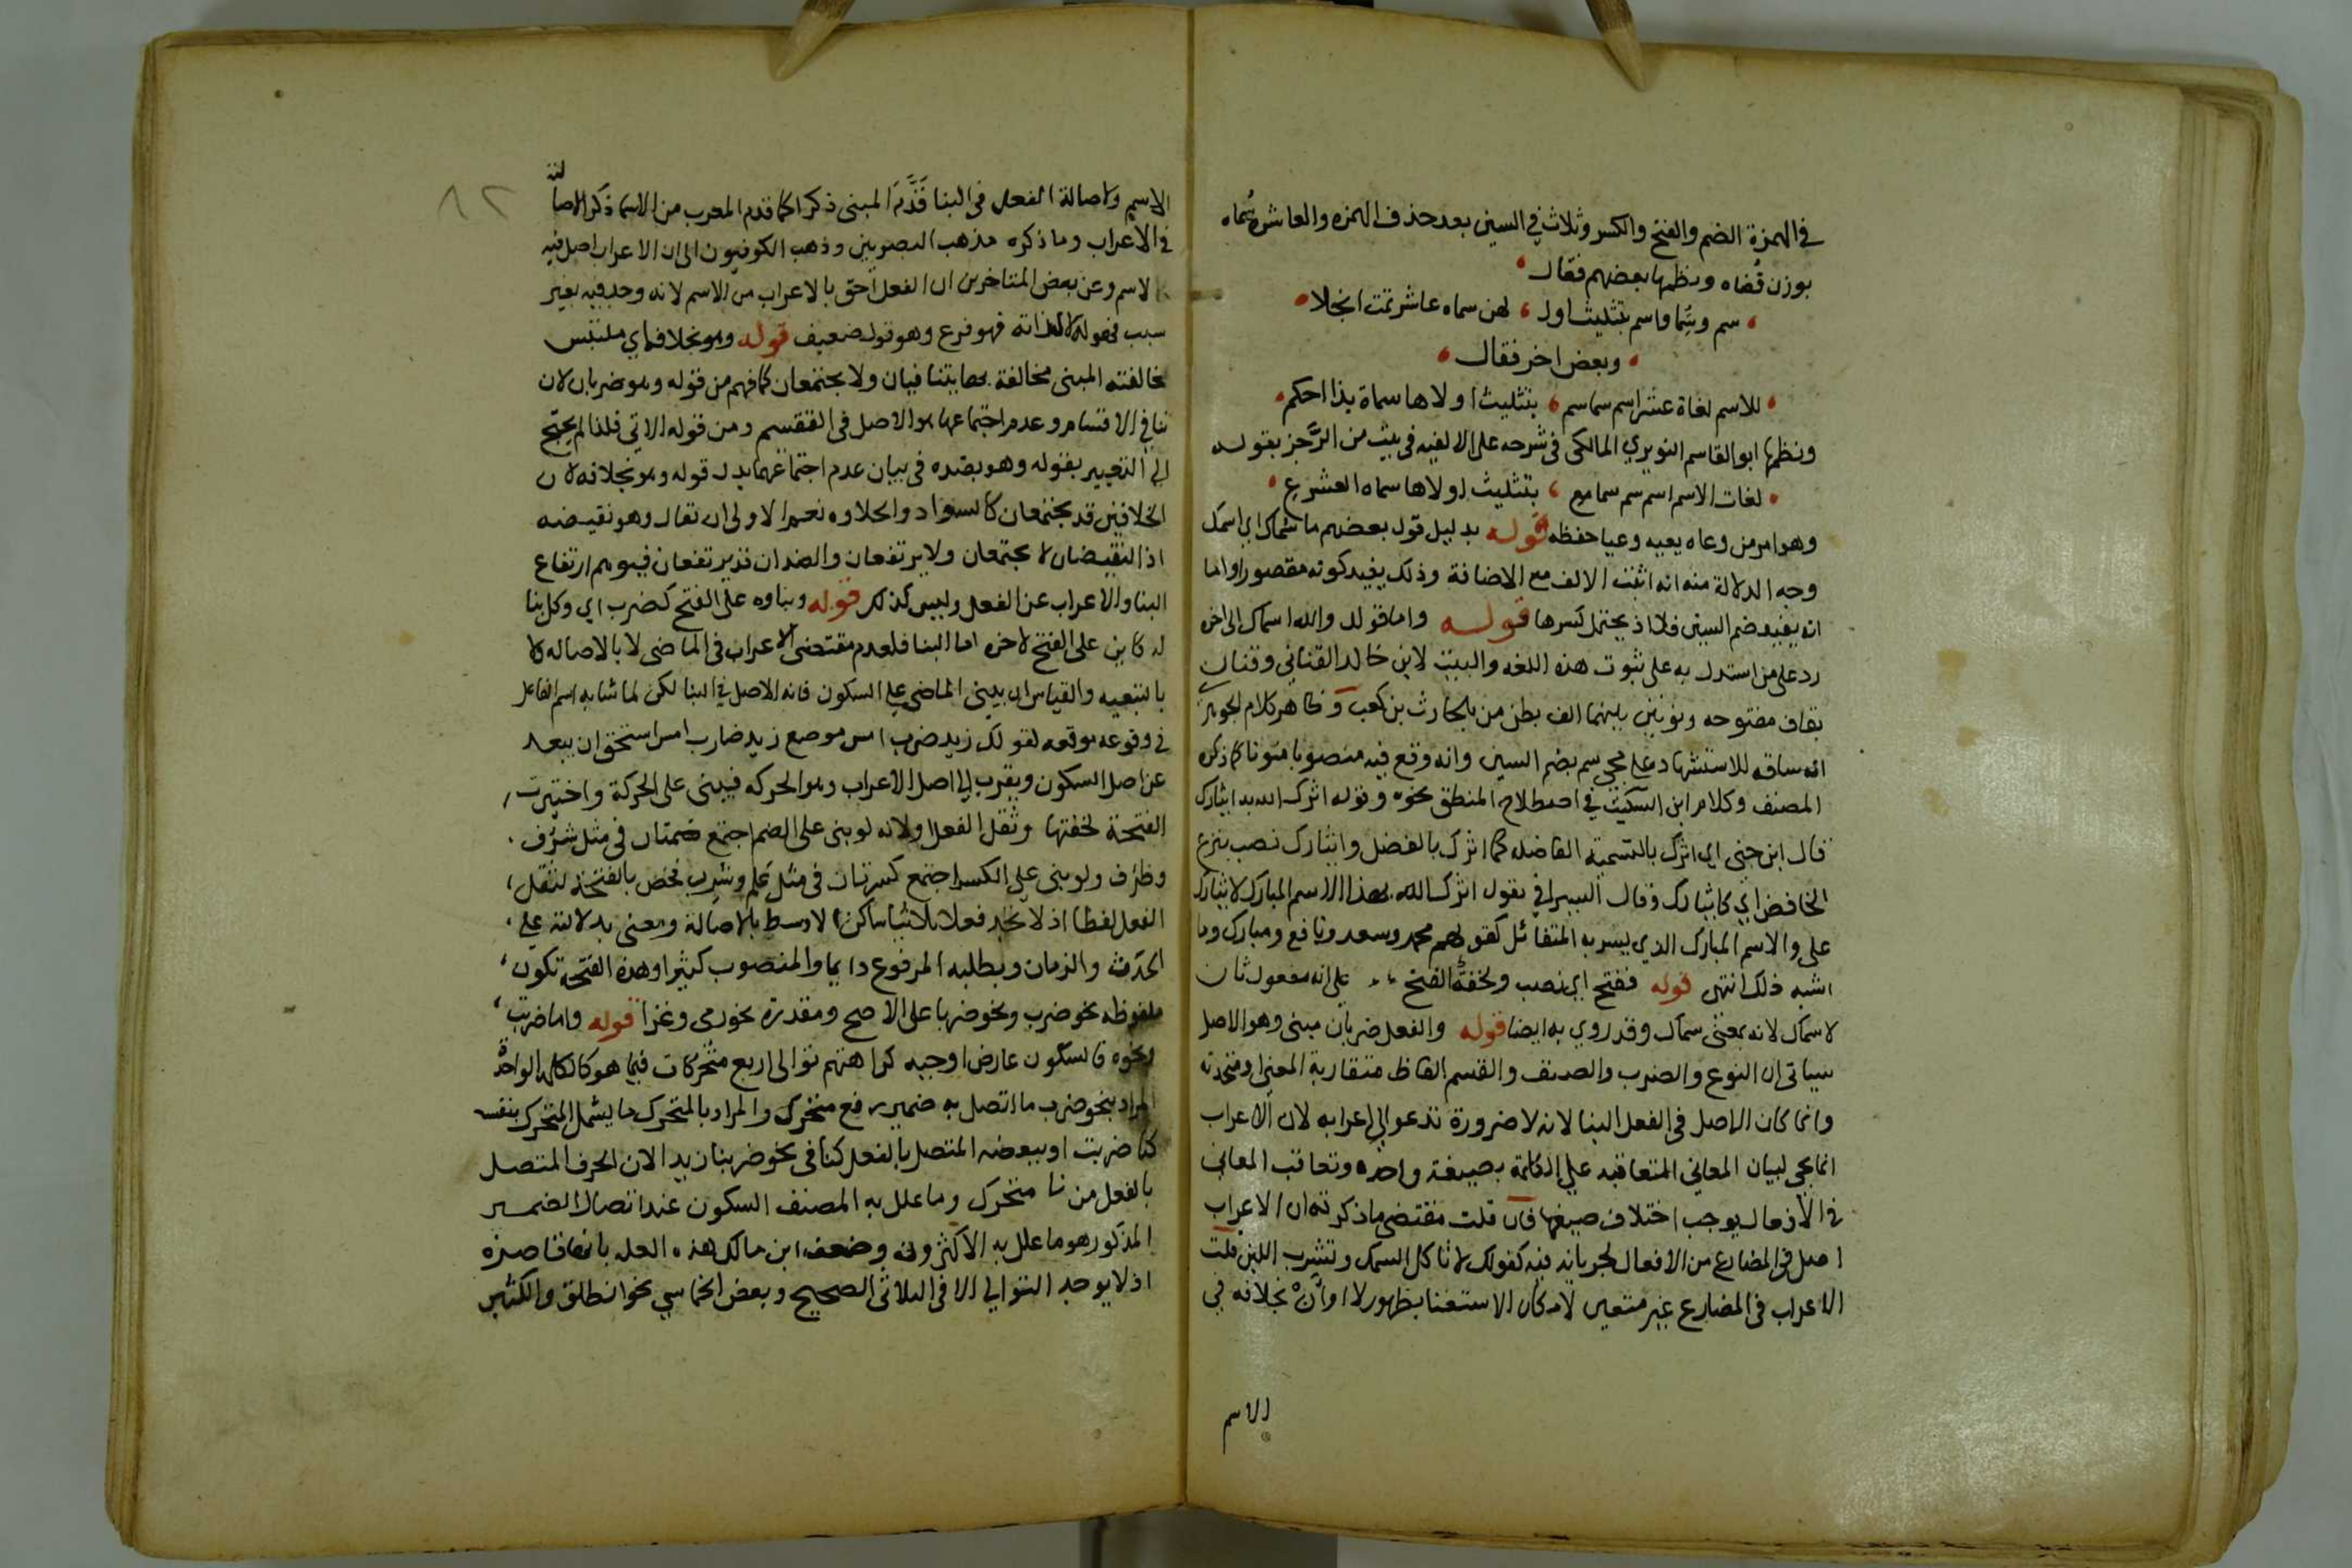 في الهمزة الضم والفتح والكسر وثلاث في السين بعد حذف الهمزه والعاشره سُماه
بوزن قُضاه ونظمها بعضهم فقال
سم وسُما واسم بتثليث اول لهن سماه عاشر تمت انجلا
وبعض اخر فقال
للاسم لغاة عشر اسم سما سم بتثليث اولاها سماة بذا احكم
ونظمها ابو القاسم النويري المالكي في شرحه على الالفيه في بيت من الرَّجز بقوله
لغات الاسم اسم سم سما مع بتثليث اولاها سماه العشر ع
وهو امر من وعاه يعيه وعيا حفظه قوله بدليل قول بعضهم ما سُماك اي اسمك
وجه الدلالة منه انه اثبت الالف مع الاضافة وذلك يفيد كونه مقصورا واما
انه يفيد ضم السين فلا اذ يحتمل كسرها قوله واما قوله والله اسماك الى اخره
رد على من استدل به على ثبوت هذه اللغه والبيت لابن خالد القناني وقنان
بقاف مفتوحه ونونين بينهما الف بطن من بلحارث بن كعب وظاهر كلام الجوهري
انه ساقه للاستشهاد على مجي سم بضم السين وانه وقع فيه منصوبا منونا كما ذكره
المصنف وكلام ابن السكيت في اصطلاح المنطق نحوه وقوله اثرك الله به ايثارك
قال ابن جني اي اثرك بالتسمية الفاضله كما اثرك بالفضل وايثارك نصب بنزع
الخافض اي كايثارك وقال السيرافي يقول اثرك الله بهذا الاسم المبارك لايثارك
على والاسم المبارك الذي يسر به المتفائل كقولهم محمد وسعد ونافع ومبارك وما
اشبه ذلك انتهى قوله ففتح اي نصب ولخفة الفتح على انه مفعول ثان
لاسماك لانه بمعنى سماك وقد روي به ايضا قوله والفعل ضربان مبني وهو الاصل
سياتي ان النوع والضرب والصنف والقسم الفاظ متقاربة المعنى او متحدته
وانما كان الاصل في الفعل البنا لانه لا ضرورة تدعو الى اعرابه لان الاعراب
انما يجي لبيان المعاني المتعاقبه على الكلمة بصيغة واحده وتعاقب المعاني
في الافعال يوجب اختلاف صيغها فان قلت مقتضى ما ذكرته ان الاعراب
اصل في المضارع من الافعال لجريانه فيه كقولك لا تاكل السمك وتشرب اللبن قلت
الاعراب في المضارع غير متعين لامكان الاستغنا بظهور لا او أنْ بخلافه في
الاسم
الاسم ولاصالة الفعل في البنا قَدَّمَ المبني ذكرا كما قدم المعرب من الاسما ذكرا لاصالته
في الاعراب وما ذكره مذهب البصريين وذهب الكوفيون الى ان الاعراب اصل فيه
كالاسم وعن بعض المتاخرين ان الفعل احق بالاعراب من الاسم لانه وجد فيه بغير
سبب فهو له لذاته فهو فرع وهو قول ضعيف قوله وهو بخلافه اي ملتبس
بمخالفته المبني مخالفة بها يتنافيان ولا يجتمعان كما فهم من قوله وهو ضربان لان
تنافي الاقسام وعدم اجتماعها هو الاصل في التقسيم ومن قوله الاتي فلذا لم يحتج
الي التعبير بقوله وهو بضده في بيان عدم اجتماعهما بدل قوله وهو بخلافه لان
الخلافين قد يجتمعان كالسواد والحلاوه نعم الاولى ان تقال وهو نقيضه
اذ النقيضان لا يجتمعان ولا يرتفعان والضدان قد يرتفعان فيوهم ارتفاع
البنا والاعراب عن الفعل وليس كذلك قوله وبناوه على الفتح كضرب اي وكل بنا
له كاين على الفتح لاخره اما البنا فلعدم مقتضى الاعراب في الماضي لا بالاصاله لا
بالتبعيه والقياس ان يبنى الماضي على السكون فانه الاصل في البنا لكن لما شابه اسم الفاعل
في وقوعه موقعه لقولك زيد ضرب امس موضع زيد ضارب امس استحق ان يبعد
عن اصل السكون ويقرب الى اصل الاعراب وهو الحركه فيبنى على الحركة واختيرت
الفتحة لخفتها وثقل الفعل ولانه لو بني على الضم اجتمع ضمتان في مثل شرُف
وظرُف ولو بني على الكسر اجتمع كسرتان في مثل عَلِم وشَرِب فخص بالفتحة لثقل
الفعل لفظا اذ لا تجد فعلا ثلاثيا ساكن الاوسط بالاصالة ومعنى بدلالته على
الحدث والزمان وبطلبه المرفوع دايما والمنصوب كثيرا وهذه الفتحة تكون
ملفوظه نحو ضرب ونحو ضربا على الاصح ومقدرة نحو رمى وغزا قوله واما ضربت
ونحوه فالسكون عارض اوجبه كراهتهم توالى اربع متحركات فيما هو كالكلمة الواحدة
المراد بنحو ضرب ما اتصل به ضمير رفع متحرك والمراد بالمتحرك ما يشمل المتحرك بنفسه
كتا ضربت او ببعضه المتصل بالفعل كنا في نحو ضربنا زيدا لان الحرف المتصل
بالفعل من نا متحرك وما علل به المصنف السكون عند اتصال الضمير
المذكور هو ما علل به الاكثرون وضعف ابن مالك هذه العله بانها قاصره
اذ لا يوجد التوالي الا في الثلاثي الصحيح وبعض الخماسي نحو انطلق والكثير